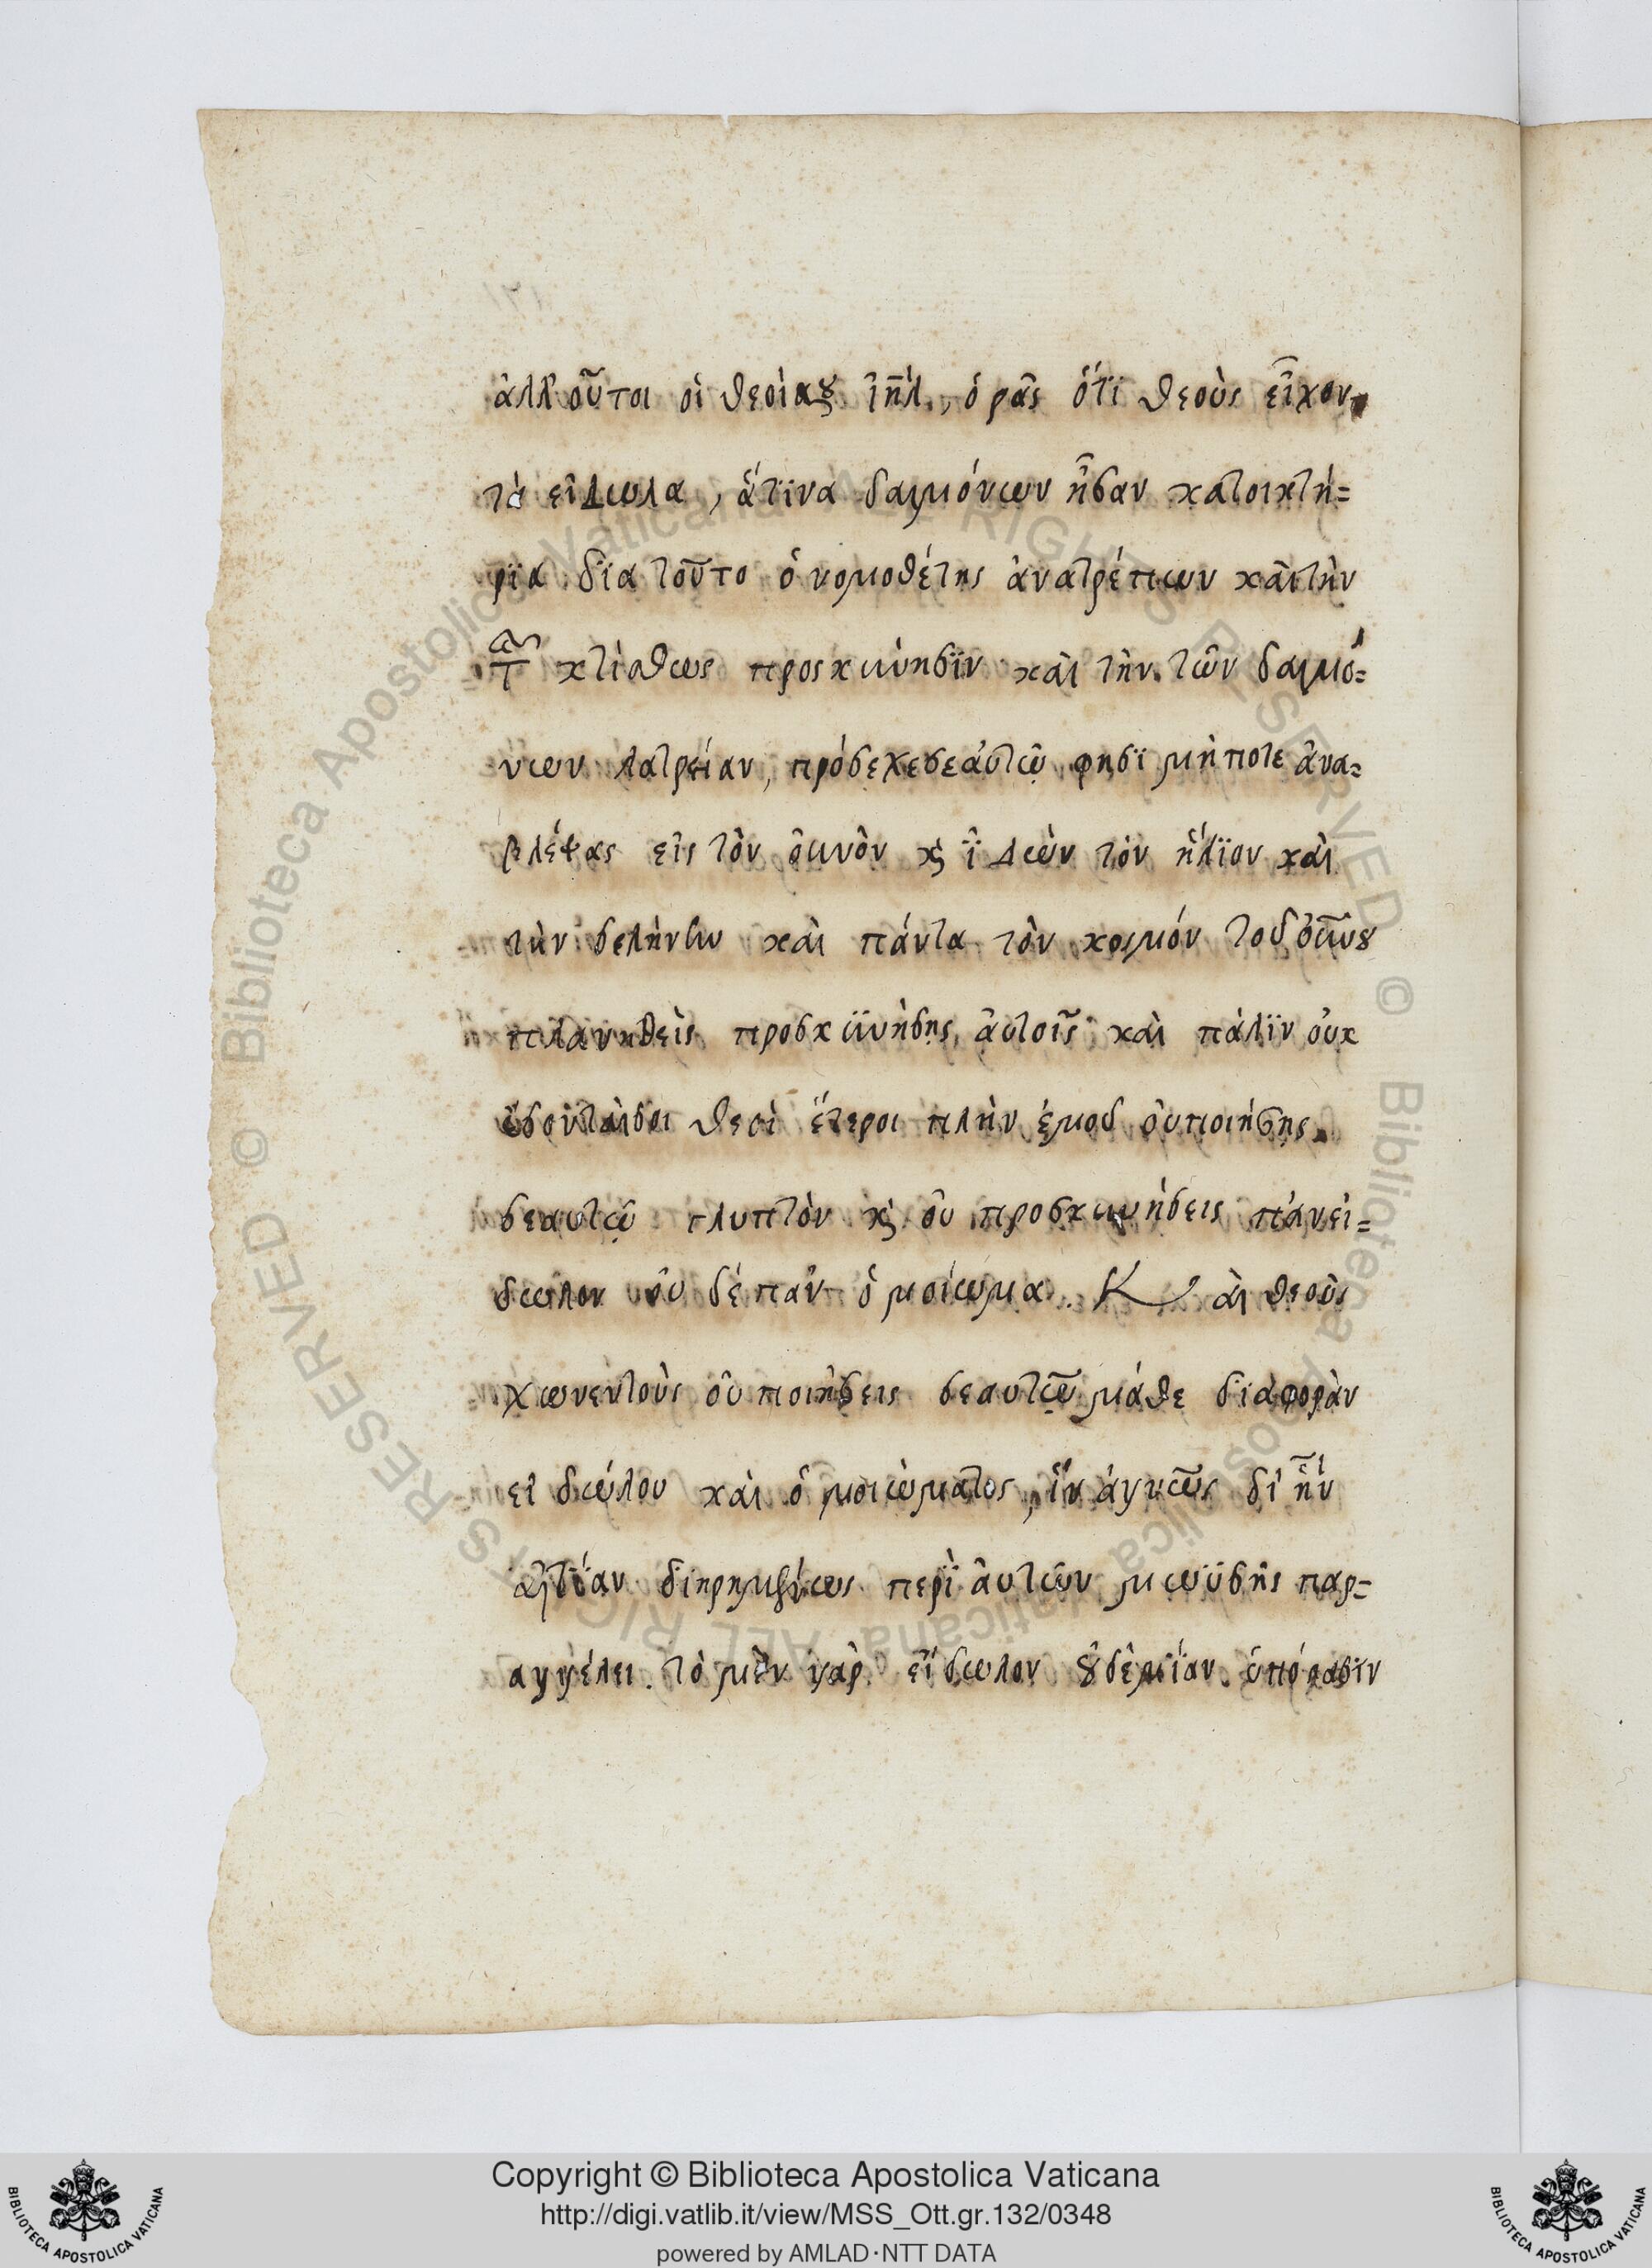 ἀλλ' οὗτοι οἱ θεοί σȣ ἰη̅λ, ὁ ρᾶς ὅτϊ θεοὺς εἶχον,
τὰ εἴδωλα, ἅτϊνα δαιμόνων ἦσαν κατοικτή=
ρϊα δϊα τοῦτο ὁ νομοθέτης ἀνατρέπων καὶ τὴν
κτίσεως προσκύνησϊν καὶ τὴν τῶν δαιμό=
νων λατρείαν, πρόσεχε σεαὐτῷ φησϊ μὴ ποτε ἀνα=
βλέψας εἰς τὸν ὀυνὸν κ ϊδὼν τὸν ἥλϊον καὶ
τὴν σελήνην καὶ πάντα τὸν κοσμόν τοῦ οὐνȣ
πλανηθεὶς προσκϋνήσης ἀυτοῖς καὶ πάλϊν οὐκ
ἔσονταί σοι θεοὶ ἕτεροι πλὴν ἐμοῦ ὀυ ποιήσης
σεαυτῷ γλυπτὸν κ ὀυ προσκυνήσεις πάν εἴ=
δωλον ὀυ δέ πᾶν ὁ μοίωμα. Καὶ θεοὺς
χωνευτοὺς ὀυ ποιήσεις σεαυτῷ μάθε δϊαφορὰν
εἰ δώλου καὶ ὁ μοιώματος, ἵν' ἁγνῶς δι' ἣν
αἰτΐαν διῃρημένως περὶ ἀυτῶν μωϋσῆς παρ=
αγγέλει. τὸ μὲν γὰρ εἴδωλον ȣδεμΐαν ὑπόστασϊν
Copyright © Biblioteca Apostolica Vaticana
http://digi.vatlib.it/view/MSS_Ott.gr.132/0348
powered by AMLAD·NTT DATA